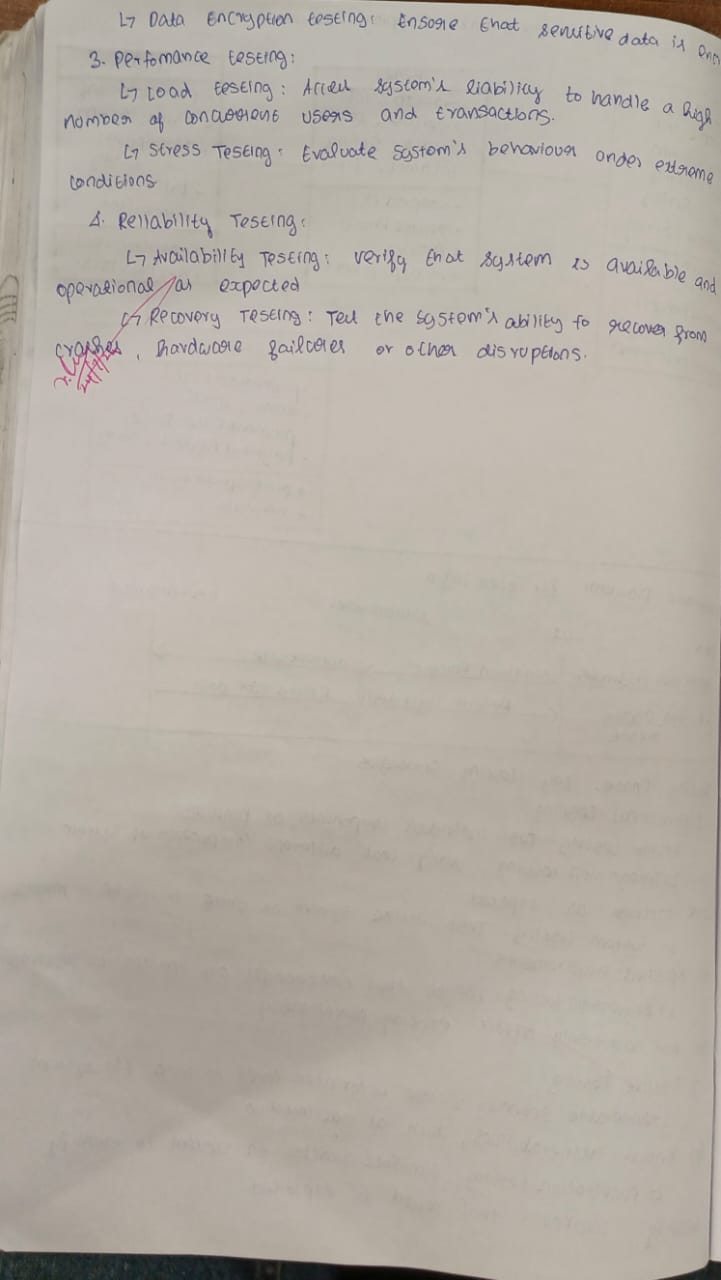 ↳ Data Encryption testing: Ensure that sensitive data is
3. Perfomance testing:
↳ Load testing: Access system's liability to handle a high
number of concurrent users and transactions.
↳ Stress Testing: Evaluate system's behaviour under extreme
conditions
4. Reliability Testing:
↳ Availability Testing: verify that system is available and
operational as expected
↳ Recovery Testing: Test the system's ability to recover from
crashes, hardware failures or other disruptions.